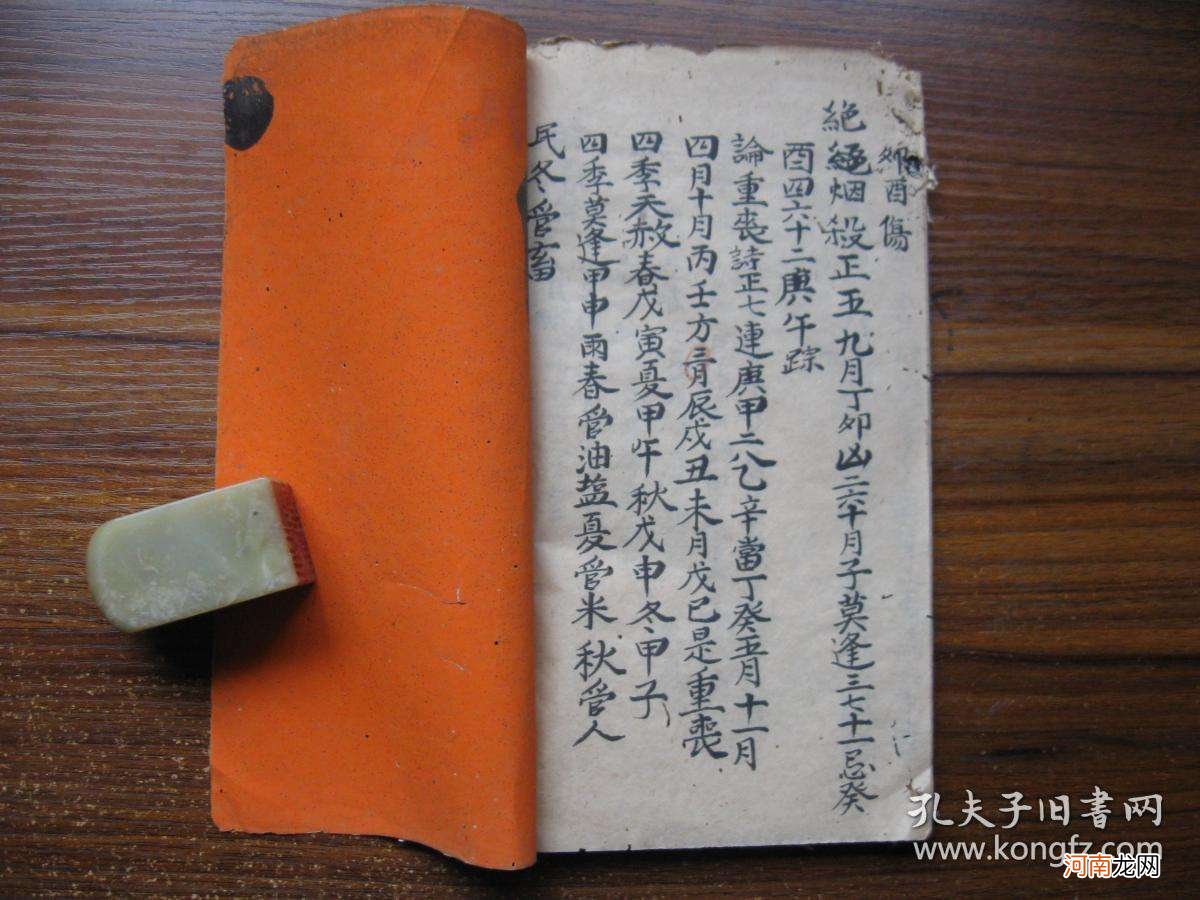 卯酉傷
絶絕烟殺正五九月丁卯凶二六十月子莫逢三七十一忌癸
酉四六十二庚午踪
論重喪詩正七連庚甲二八乙辛當丁癸五月十一月
四月十月丙壬方三月辰戌丑未月戊己是重喪
四季天赦春戊寅夏甲午秋戊申冬甲子
四季莫逢甲申雨春管油盐夏管米秋管人
民冬管畜
孔夫子旧书网
www.kongfz.com
河南龙网